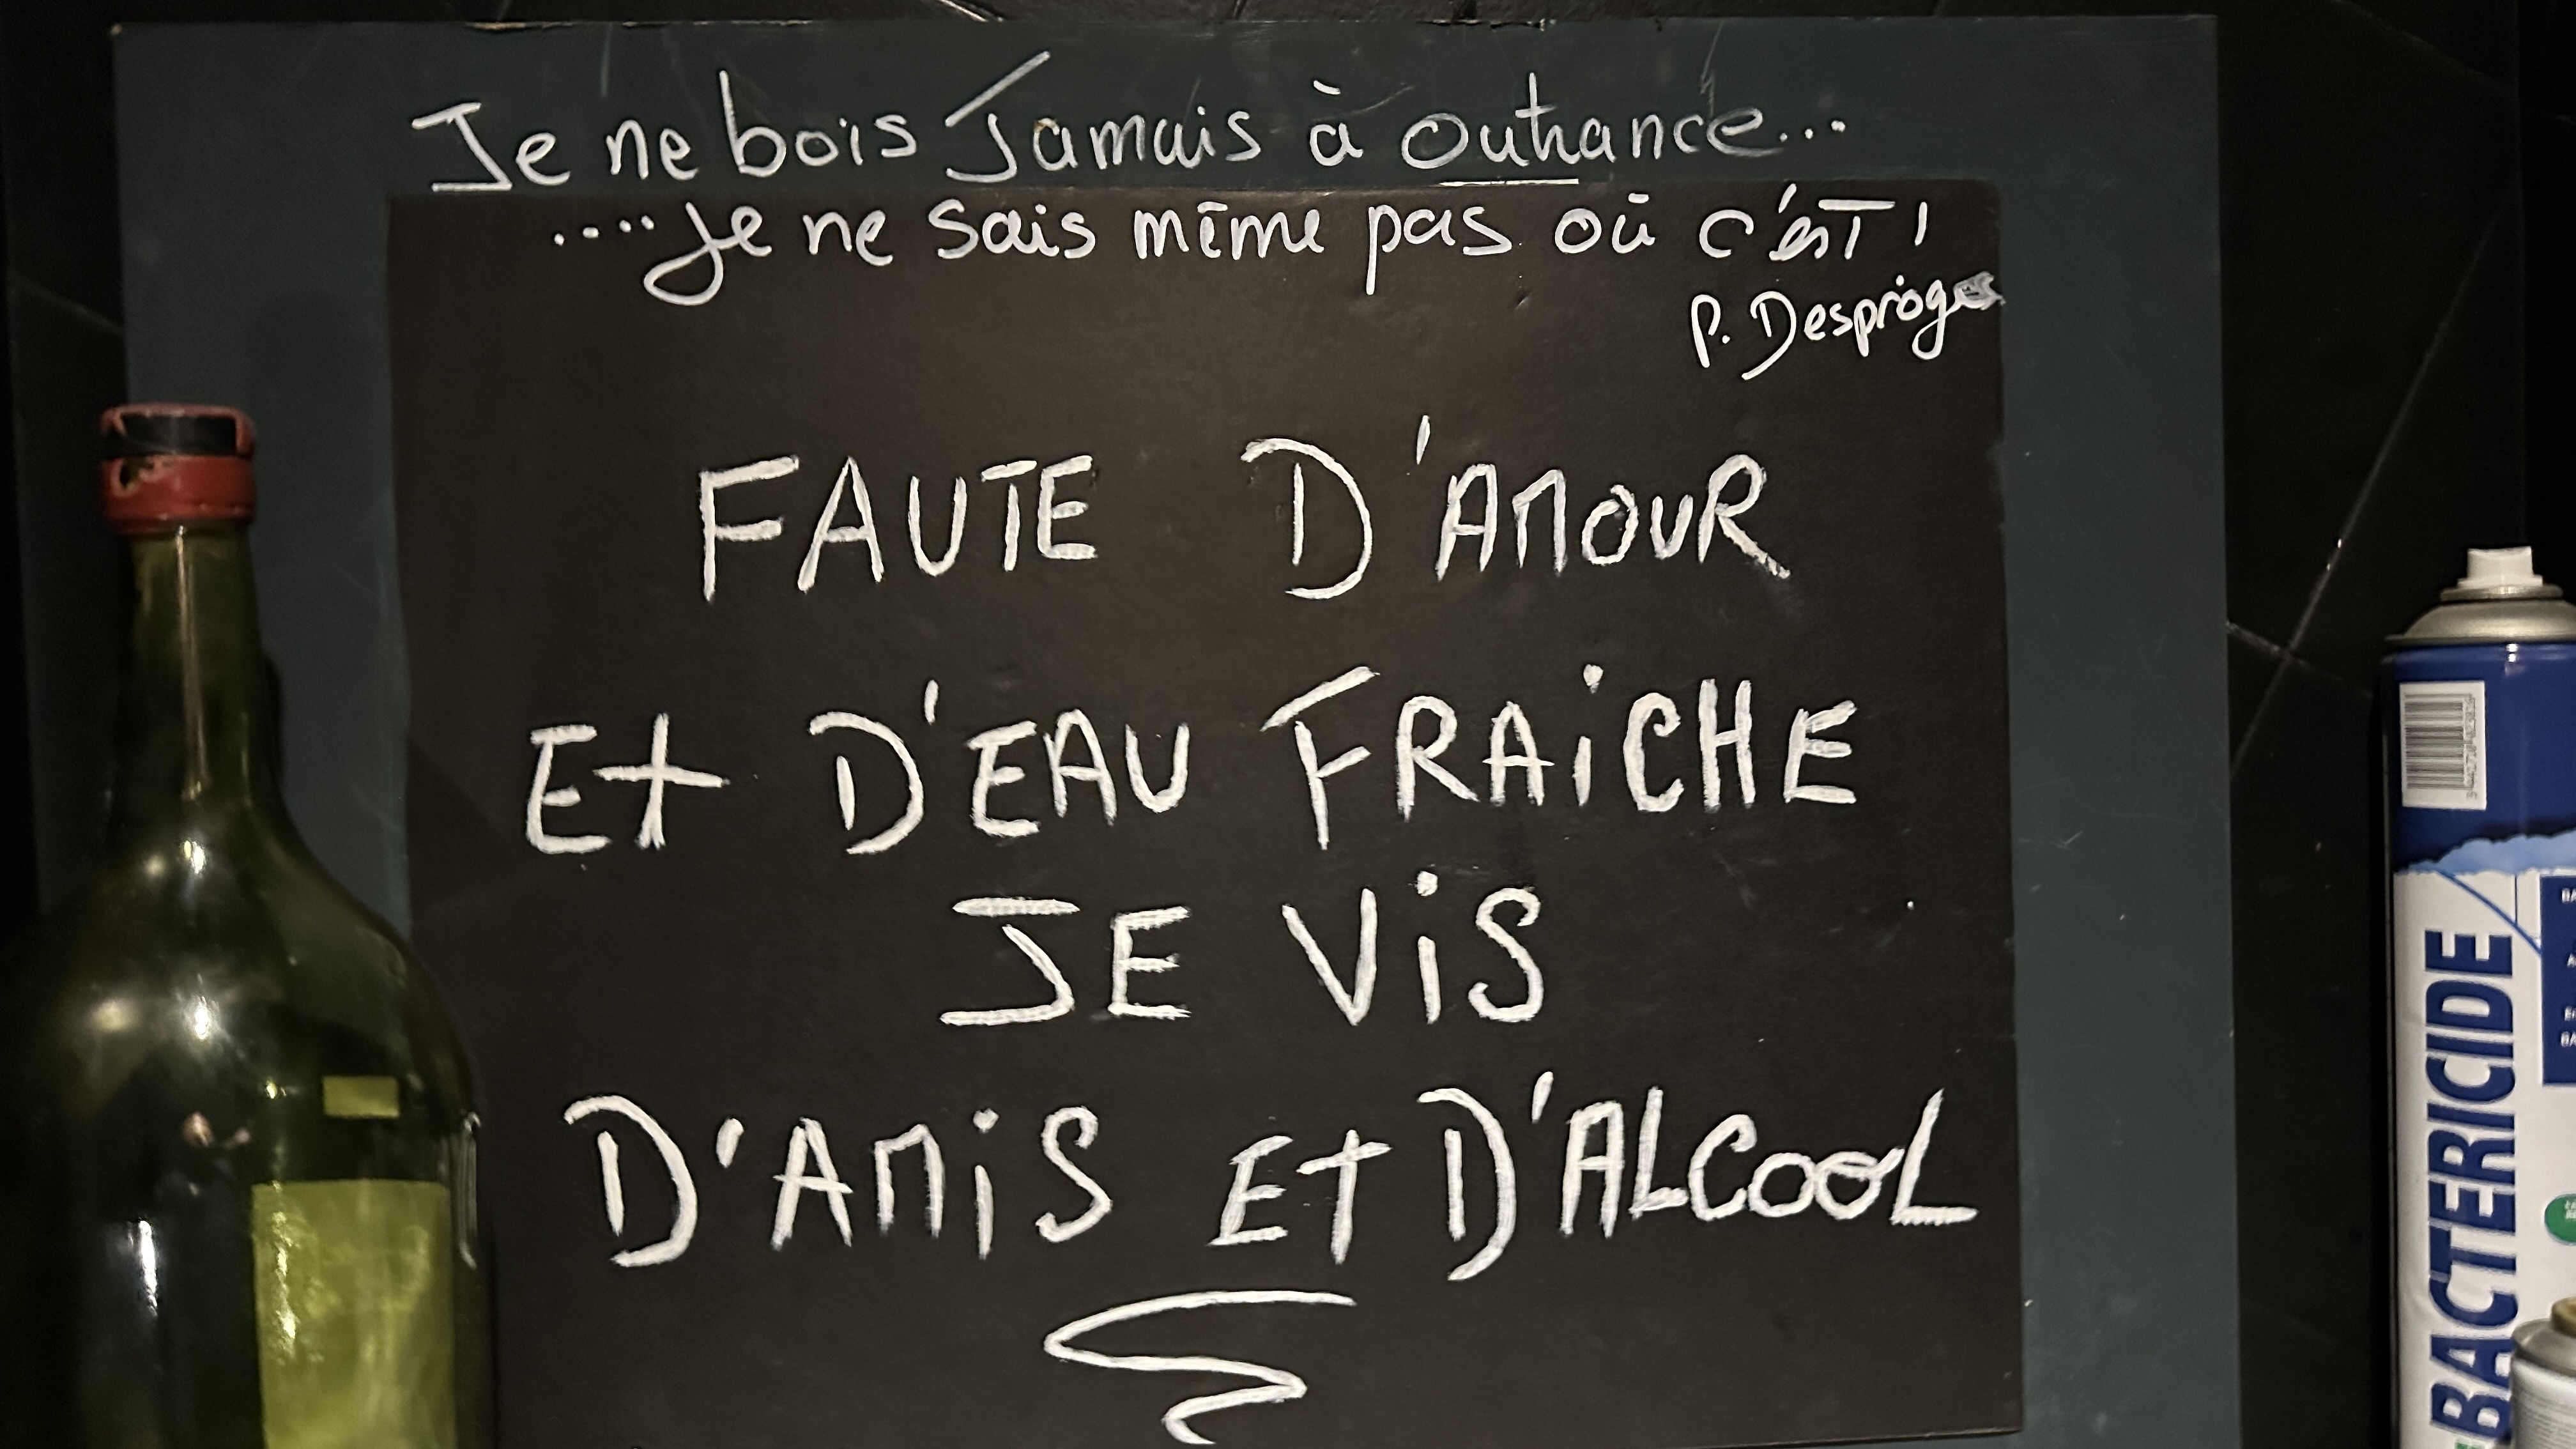 Je ne bois Jamais à outrance...
....Je ne sais même pas où c'est !
P. Desproges
FAUTE D'AMOUR
Et D'EAU FRAiCHE
JE ViS
D'AMiS Et D'ALCOOL
BACTERICIDE